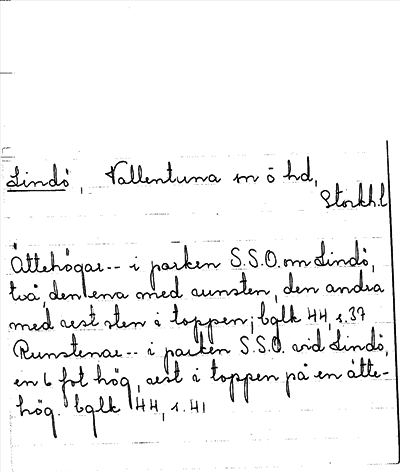 Lindö, Vallentuna sn ö hd,
Storkh.l
Åttehögar-- i parken S.S.O. om Lindö,
två, den ena med runsten, den andra
med rest sten i toppen; bglk 44, s. 37
Runstenar-- i parken S.S.O. vid Lindö,
en 6 fot hög, rest i toppen på en åtte-
hög. bglk 44, s. 41